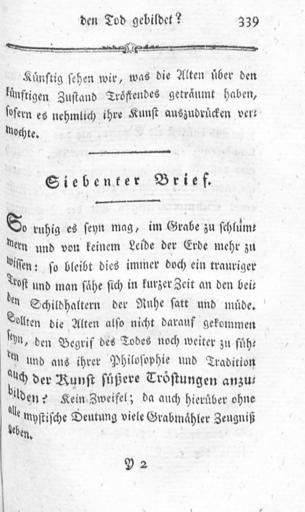 den Tod gebildet? 339
Künftig sehen wir, was die Alten über den
künftigen Zustand Tröstendes geträumt haben,
sofern es nehmlich ihre Kunst auszudrücken ver-
mochte.
Siebenter Brief.
So ruhig es seyn mag, im Grabe zu schlum-
mern und von keinem Leide der Erde mehr zu
wissen: so bleibt dies immer doch ein trauriger
Trost und man sähe sich in kurzer Zeit an den bei-
den Schildhaltern der Ruhe satt und müde.
Sollten die Alten also nicht darauf gekommen
seyn, den Begrif des Todes noch weiter zu füh-
ren und aus ihrer Philosophie und Tradition
auch der Kunst süßere Tröstungen anzu-
bilden? Kein Zweifel; da auch hierüber ohne
alle mystische Deutung viele Grabmähler Zeugniß
geben.
Y 2